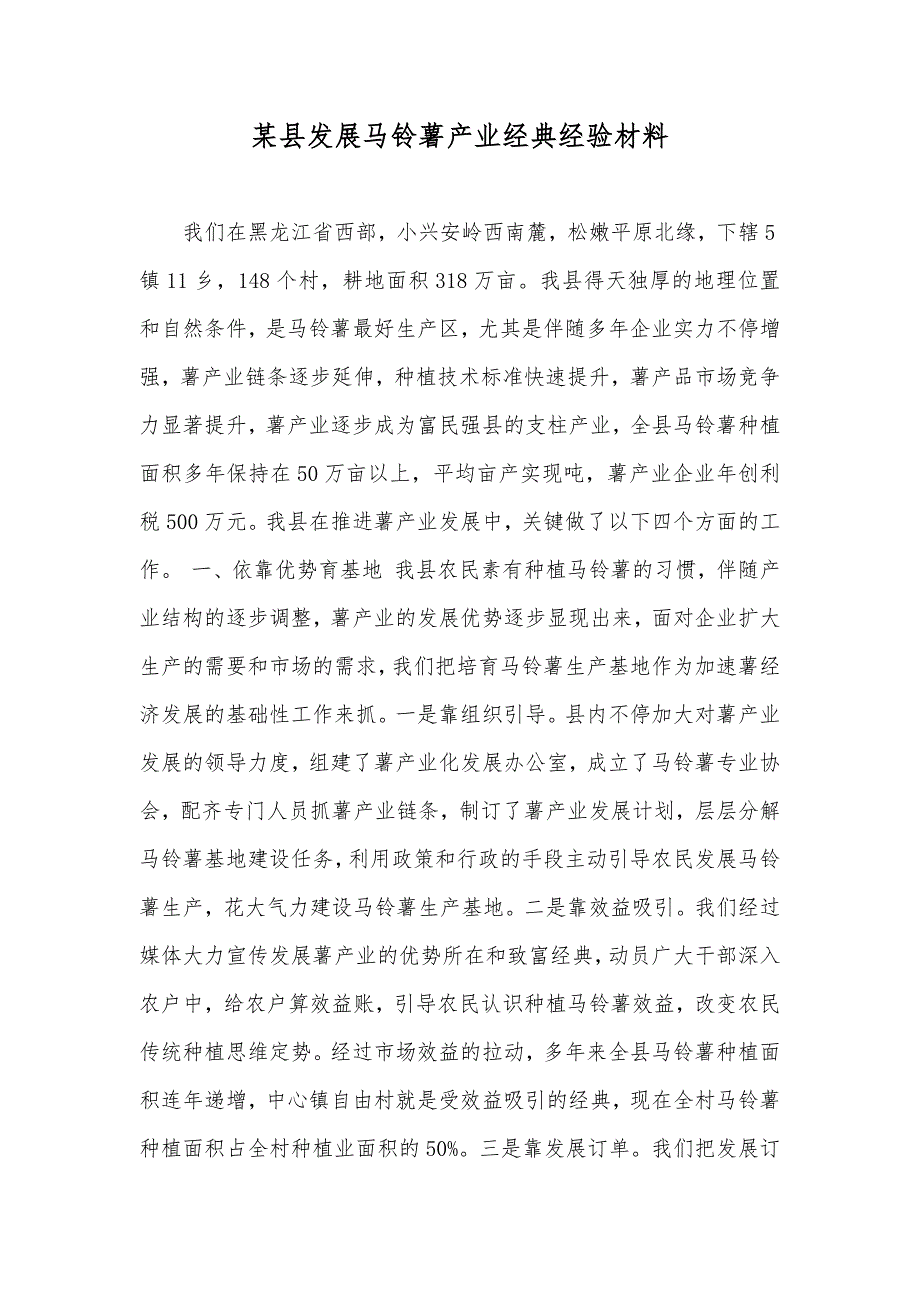 某县发展马铃薯产业经典经验材料
我们在黑龙江省西部，小兴安岭西南麓，松嫩平原北缘，下辖5
镇11乡，148个村，耕地面积318万亩。我县得天独厚的地理位置
和自然条件，是马铃薯最好生产区，尤其是伴随多年企业实力不停增
强，薯产业链条逐步延伸，种植技术标准快速提升，薯产品市场竞争
力显著提升，薯产业逐步成为富民强县的支柱产业，全县马铃薯种植
面积多年保持在50万亩以上，平均亩产实现吨，薯产业企业年创利
税500万元。我县在推进薯产业发展中，关键做了以下四个方面的工
作。 一、依靠优势育基地 我县农民素有种植马铃薯的习惯，伴随产
业结构的逐步调整，薯产业的发展优势逐步显现出来，面对企业扩大
生产的需要和市场的需求，我们把培育马铃薯生产基地作为加速薯经
济发展的基础性工作来抓。一是靠组织引导。县内不停加大对薯产业
发展的领导力度，组建了薯产业化发展办公室，成立了马铃薯专业协
会，配齐专门人员抓薯产业链条，制订了薯产业发展计划，层层分解
马铃薯基地建设任务，利用政策和行政的手段主动引导农民发展马铃
薯生产，花大气力建设马铃薯生产基地。二是靠效益吸引。我们经过
媒体大力宣传发展薯产业的优势所在和致富经典，动员广大干部深入
农户中，给农户算效益账，引导农民认识种植马铃薯效益，改变农民
传统种植思维定势。经过市场效益的拉动，多年来全县马铃薯种植面
积连年递增，中心镇自由村就是受效益吸引的经典，现在全村马铃薯
种植面积占全村种植业面积的50%。三是靠发展订单。我们把发展订